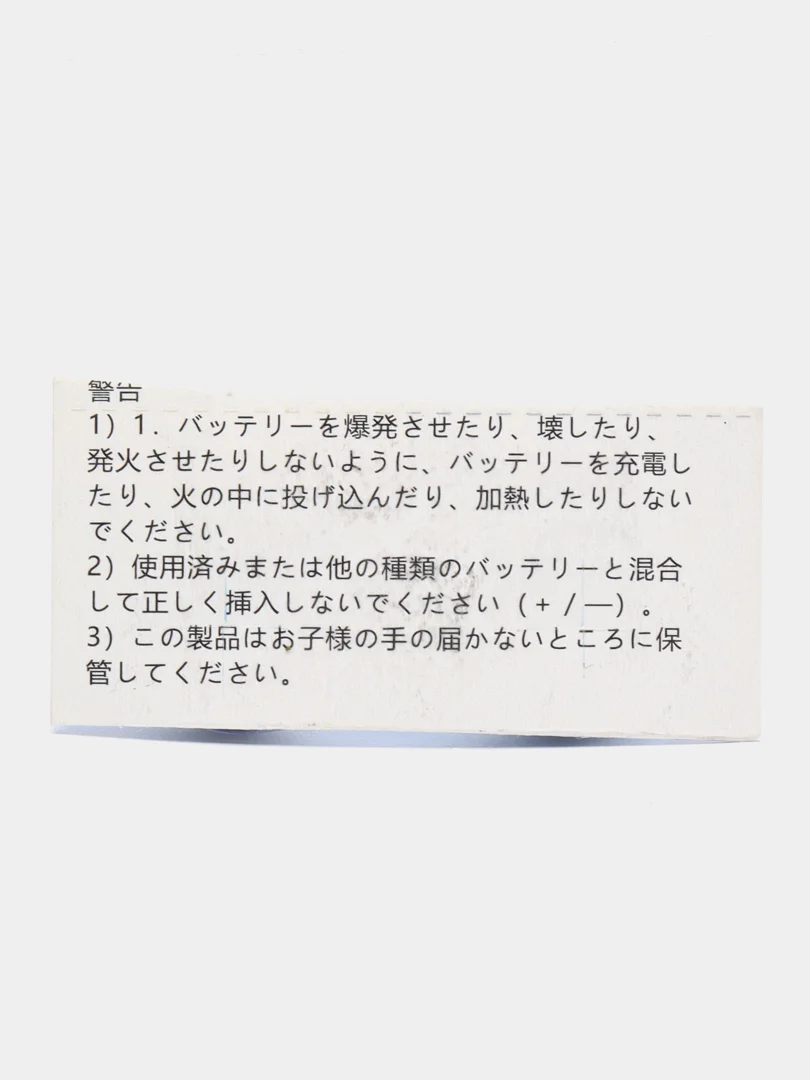 警告
1）1．バッテリーを爆発させたり、壊したり、
発火させたりしないように、バッテリーを充電し
たり、火の中に投げ込んだり、加熱したりしない
でください。
2）使用済みまたは他の種類のバッテリーと混合
して正しく挿入しないでください（+ / —）。
3）この製品はお子様の手の届かないところに保
管してください。